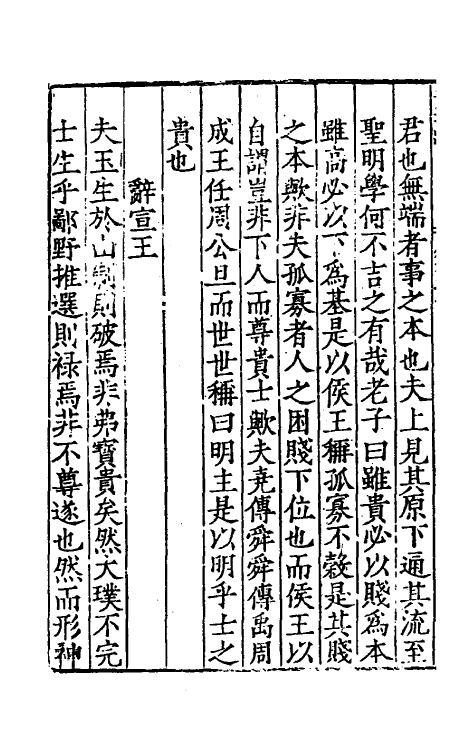 君也無端者事之本也夫上見其原下通其流至
聖明學何不吉之有哉老子曰雖貴必以賤為本
雖高必以下為基是以侯王稱孤寡不穀是其賤
之本歟非夫孤寡者人之困賤下位也而侯王以
自謂豈非下人而尊貴士歟夫堯傳舜舜傳禹周
成王任周公旦而世世稱曰明主是以明乎士之
貴也
辭宣王
夫玉生於山制則破焉非弗寶貴矣然大璞不完
士生乎鄙野推選則祿焉非不尊遂也然而形神